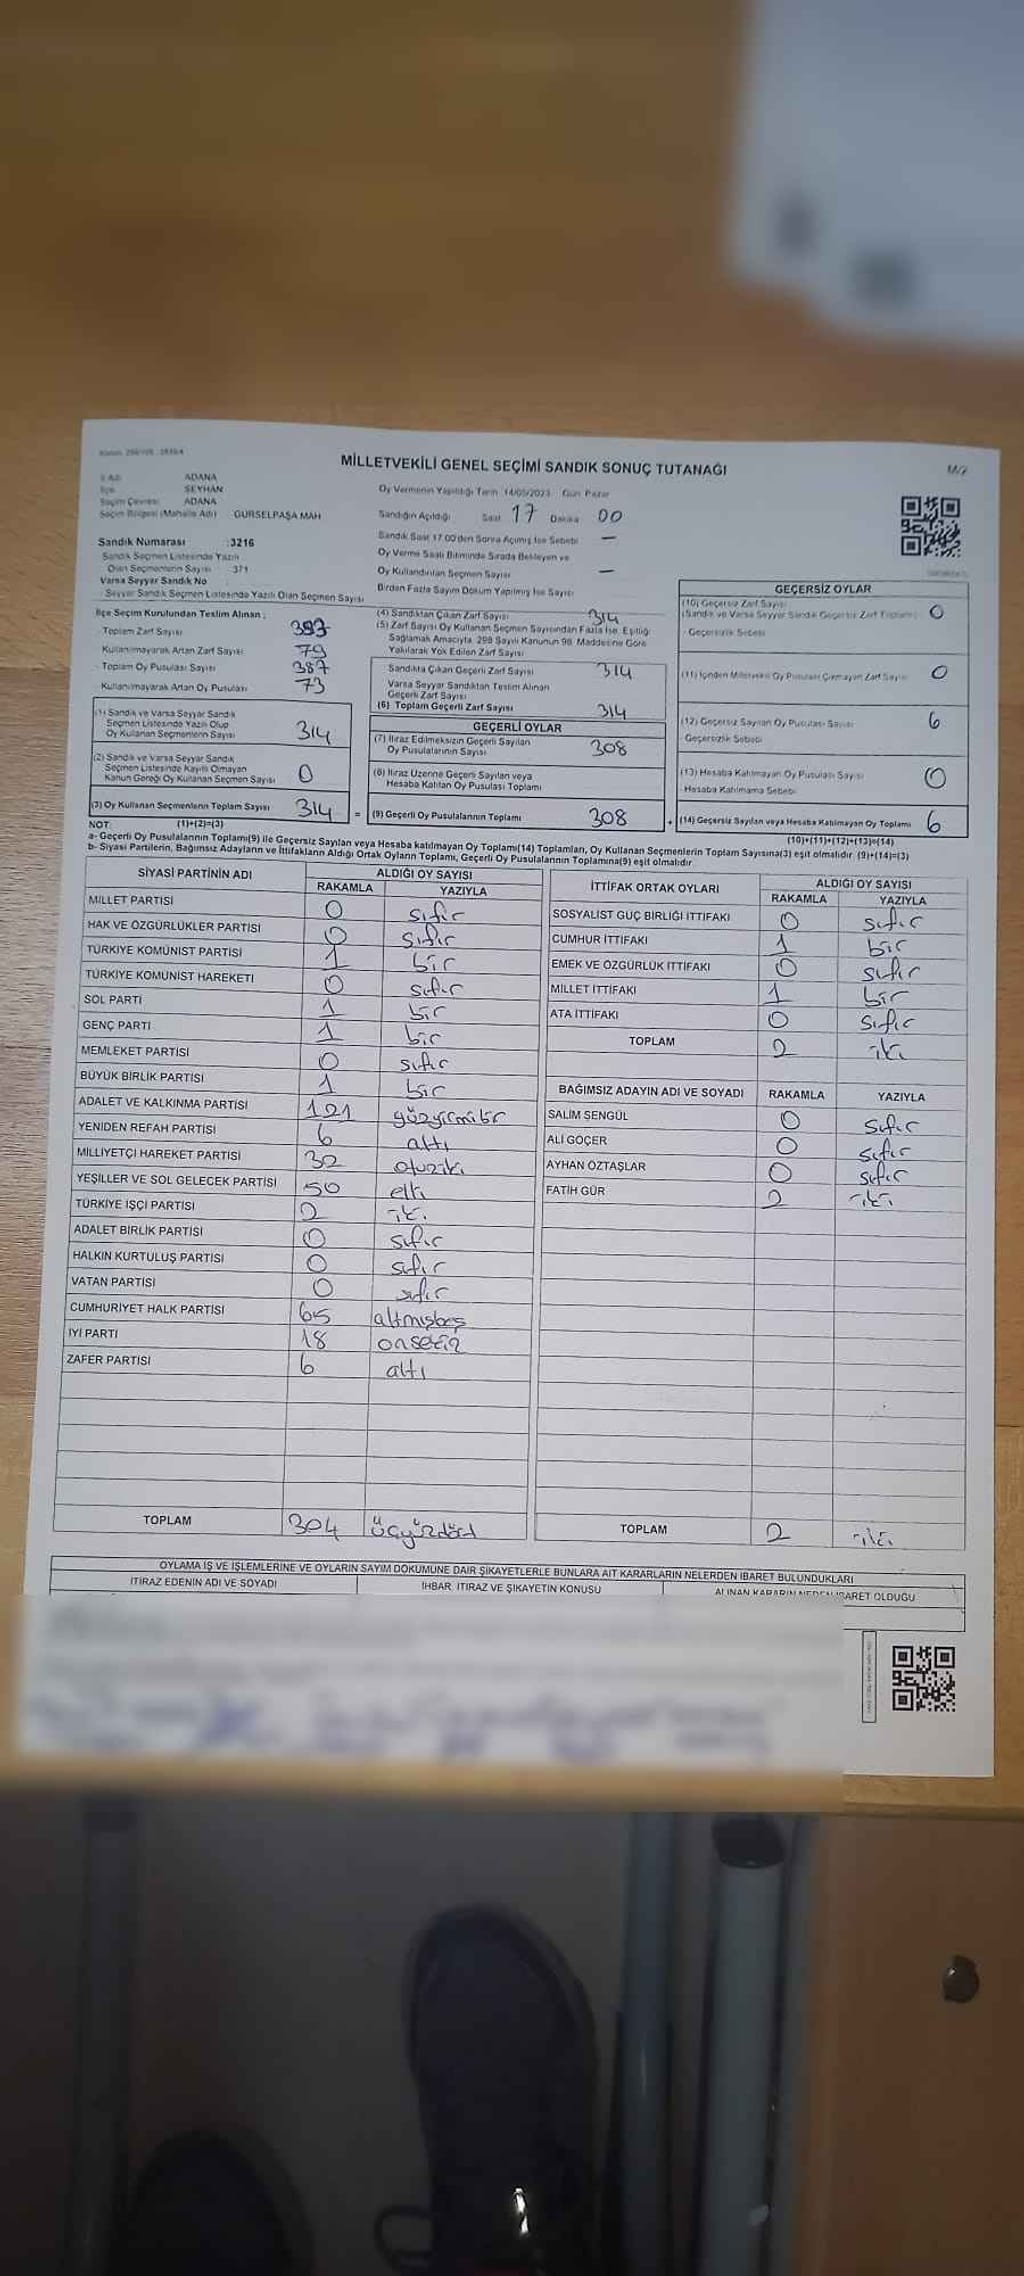 MİLLETVEKİLİ GENEL SEÇİMİ SANDIK SONUÇ TUTANAĞI
M/2
İli Adı ADANA
İlçe SEYHAN
Seçim Çevresi ADANA
Seçim Bölgesi (Mahalle Adı) GÜRSELPAŞA MAH
Oy Vermenin Yapıldığı Tarih 14/05/2023 Gün Pazar
Sandığın Açıldığı Saat 17 Dakika 00
Sandık Saat 17.00'den Sonra Açılmış İse Sebebi —
Oy Verme Saati Bitiminde Sırada Bekleyen ve
Oy Kullandırılan Seçmen Sayısı —
Birden Fazla Sayım Döküm Yapılmış İse Sayısı
Sandık Numarası :3216
Sandık Seçmen Listesinde Yazılı
Olan Seçmenlerin Sayısı 371
Varsa Seyyar Sandık No
Seyyar Sandık Seçmen Listesinde Yazılı Olan Seçmen Sayısı
İlçe Seçim Kurulundan Teslim Alınan ;
Toplam Zarf Sayısı 393
Kullanılmayarak Artan Zarf Sayısı 79
Toplam Oy Pusulası Sayısı 387
Kullanılmayarak Artan Oy Pusulası 73
(1) Sandık ve Varsa Seyyar Sandık
Seçmen Listesinde Yazılı Olup
Oy Kullanan Seçmenlerin Sayısı 314
(2) Sandık ve Varsa Seyyar Sandık
Seçmen Listesinde Kayıtlı Olmayan
Kanun Gereği Oy Kullanan Seçmen Sayısı 0
(3) Oy Kullanan Seçmenlerin Toplam Sayısı 314 =
(4) Sandıktan Çıkan Zarf Sayısı 314
(5) Zarf Sayısı Oy Kullanan Seçmen Sayısından Fazla İse, Eşitliği
Sağlamak Amacıyla, 298 Sayılı Kanunun 98. Maddesine Göre
Yakılarak Yok Edilen Zarf Sayısı
Sandıkta Çıkan Geçerli Zarf Sayısı 314
Varsa Seyyar Sandıktan Teslim Alınan
Geçerli Zarf Sayısı
(6) Toplam Geçerli Zarf Sayısı 314
GEÇERLİ OYLAR
(7) İtiraz Edilmeksizin Geçerli Sayılan
Oy Pusulalarının Sayısı 308
(8) İtiraz Üzerine Geçerli Sayılan veya
Hesaba Katılan Oy Pusulası Toplamı
(9) Geçerli Oy Pusulalarının Toplamı 308 +
GEÇERSİZ OYLAR
(10) Geçersiz Zarf Sayısı 0
(Sandık ve Varsa Seyyar Sandık Geçersiz Zarf Toplamı)
Geçersizlik Sebebi
(11) İçinden Milletvekili Oy Pusulası Çıkmayan Zarf Sayısı 0
(12) Geçersiz Sayılan Oy Pusulası Sayısı 6
Geçersizlik Sebebi
(13) Hesaba Katılmayan Oy Pusulası Sayısı 0
Hesaba Katılmama Sebebi
(14) Geçersiz Sayılan veya Hesaba Katılmayan Oy Toplamı 6
NOT: (1)+(2)=(3) (10)+(11)+(12)+(13)=(14)
a- Geçerli Oy Pusulalarının Toplamı(9) ile Geçersiz Sayılan veya Hesaba katılmayan Oy Toplamı(14) Toplamları, Oy Kullanan Seçmenlerin Toplam Sayısına(3) eşit olmalıdır. (9)+(14)=(3)
b- Siyasi Partilerin, Bağımsız Adayların ve İttifakların Aldığı Ortak Oyların Toplamı, Geçerli Oy Pusulalarının Toplamına(9) eşit olmalıdır
SİYASİ PARTİNİN ADI ALDIĞI OY SAYISI
RAKAMLA YAZIYLA
MİLLET PARTİSİ 0 sıfır
HAK VE ÖZGÜRLÜKLER PARTİSİ 0 sıfır
TÜRKİYE KOMÜNİST PARTİSİ 1 bir
TÜRKİYE KOMÜNİST HAREKETİ 0 sıfır
SOL PARTİ 1 bir
GENÇ PARTİ 1 bir
MEMLEKET PARTİSİ 0 sıfır
BÜYÜK BİRLİK PARTİSİ 1 bir
ADALET VE KALKINMA PARTİSİ 121 yüzyirmibir
YENİDEN REFAH PARTİSİ 6 altı
MİLLİYETÇİ HAREKET PARTİSİ 32 otuziki
YEŞİLLER VE SOL GELECEK PARTİSİ 50 elli
TÜRKİYE İŞÇİ PARTİSİ 2 iki
ADALET BİRLİK PARTİSİ 0 sıfır
HALKIN KURTULUŞ PARTİSİ 0 sıfır
VATAN PARTİSİ 0 sıfır
CUMHURİYET HALK PARTİSİ 65 altmışbeş
İYİ PARTİ 18 onsekiz
ZAFER PARTİSİ 6 altı
TOPLAM 304 üçyüzdört
İTTİFAK ORTAK OYLARI ALDIĞI OY SAYISI
RAKAMLA YAZIYLA
SOSYALİST GÜÇ BİRLİĞİ İTTİFAKI 0 sıfır
CUMHUR İTTİFAKI 1 bir
EMEK VE ÖZGÜRLÜK İTTİFAKI 0 sıfır
MİLLET İTTİFAKI 1 bir
ATA İTTİFAKI 0 sıfır
TOPLAM 2 iki
BAĞIMSIZ ADAYIN ADI VE SOYADI RAKAMLA YAZIYLA
SALİM ŞENGÜL 0 sıfır
ALİ GÖÇER 0 sıfır
AYHAN ÖZTAŞLAR 0 sıfır
FATİH GÜR 2 iki
TOPLAM 2 iki
OYLAMA İŞ VE İŞLEMLERİNE VE OYLARIN SAYIM DÖKÜMÜNE DAİR ŞİKAYETLERLE BUNLARA AİT KARARLARIN NELERDEN İBARET BULUNDUKLARI
İTİRAZ EDENİN ADI VE SOYADI
İHBAR İTİRAZ VE ŞİKAYETİN KONUSU
ALINAN KARARIN NEDEN İBARET OLDUĞU